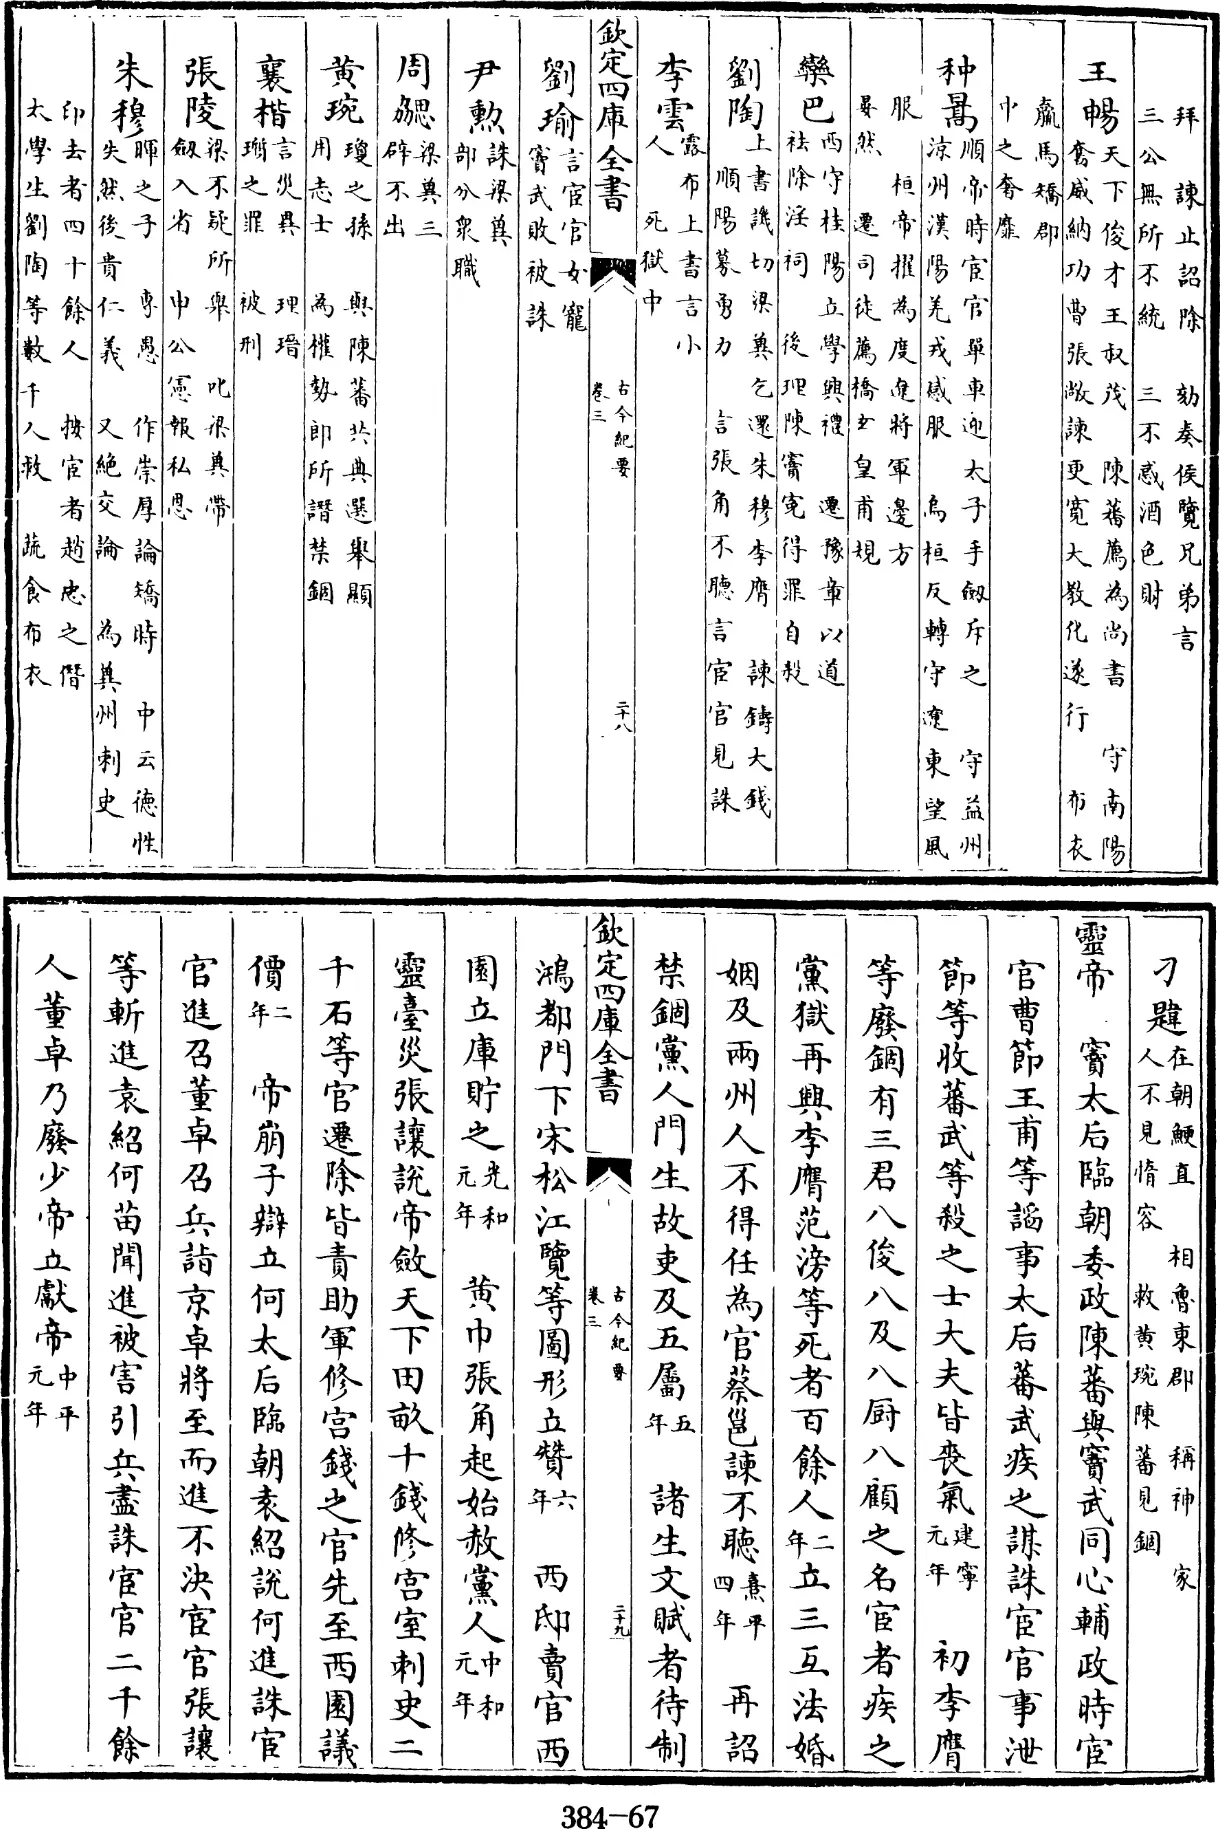 拜　諫止詔除　劾奏侯覽兄弟言
三公無所不統　三不惑酒色財
王暢天下俊才王叔茂　陳蕃薦為尚書　守南陽
奮厲威納功曹張敞諫更寛大教化遂行　布衣
羸馬矯郡
中之奢靡
种暠順帝時宦官單車迎太子手劔斥之　守益州
涼州漢陽羌戎感服　烏桓反轉守遼東望風
服　桓帝擢為度遼將軍邊方
晏然　遷司徒薦橋玄皇甫規
欒巴西守桂陽立學興禮　遷豫章以道
袪除淫祠　後理陳竇寃得罪自殺
劉陶上書譏切梁冀乞還朱穆李膺　諫鑄大錢
順陽募勇力　言張角不聽言宦官見誅
李雲露布上書言小
人　死獄中
欽定四庫全書
古今紀要
卷三
二十八
劉瑜言宦官女寵
竇武敗被誅
尹勲誅梁冀
部分衆職
周勰梁冀三
辟不出
黄琬瓊之孫　與陳蕃共典選舉顯
用志士　為權勢郎所譖禁錮
襄楷言災異　理瑨
瓆之罪　被刑
張陵梁不疑所舉　叱梁冀帶
劔入省　申公憲報私恩
朱穆暉之子　專愚　作崇厚論矯時　中云德性
失然後貴仁義　又絶交論　為冀州刺史
印去者四十餘人　按宦者趙忠之僭
太學生劉陶等數千人救　蔬食布衣
刁韙在朝鯁直　相魯東郡　稱神
人不見惰容　救黄琬陳蕃見錮　家
靈帝　竇太后臨朝委政陳蕃與竇武同心輔政時宦
官曹節王甫等謟事太后蕃武疾之謀誅宦官事泄
節等收蕃武等殺之士大夫皆喪氣建寧元年　初李膺
等廢錮有三君八俊八及八厨八顧之名宦者疾之
黨獄再興李膺范滂等死者百餘人二年立三互法婚
姻及兩州人不得任為官蔡邕諫不聽熹平四年　再詔
禁錮黨人門生故吏及五屬五年　諸生文賦者待制
欽定四庫全書
古今紀要
卷三
二十九
鴻都門下宋松江覽等圖形立贊六年　西邸賣官西
園立庫貯之光和元年　黄巾張角起始赦黨人中和元年
靈臺災張讓説帝斂天下田畝十錢修宫室刺史二
千石等官遷除皆責助軍修宫錢之官先至西園議
價二年　帝崩子辯立何太后臨朝袁紹説何進誅宦
官進召董卓召兵詣京卓將至而進不決宦官張讓
等斬進袁紹何苗聞進被害引兵盡誅宦官二千餘
人董卓乃廢少帝立獻帝中平元年
384-67